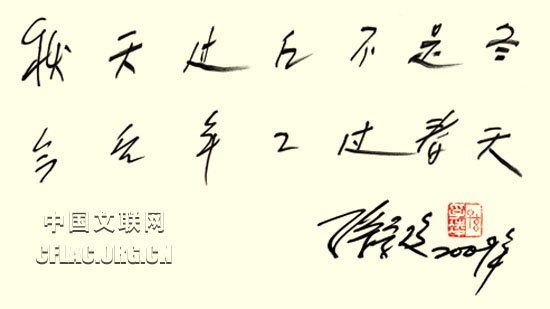 秋天过后不是冬
今后年々过春天
2009年
中国文联网
CFLAC.ORG.CN